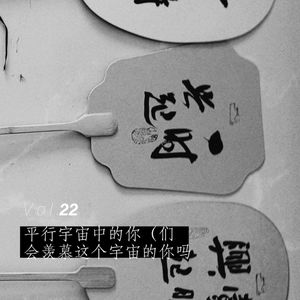 一时
兴起
Vol 22
平行宇宙中的你（们
会羡慕这个宇宙的你吗